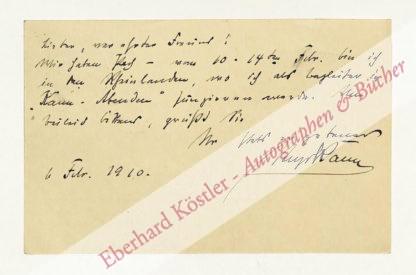 Lieber, verehrter Freund!
Wir haben Pech – vom 10–14ten Febr. bin ich
in den Rheinlanden, wo ich als Begleiter in
"Kaun-Abenden" fungieren werde. Um
Beileid bittend, grüßt Sie
Ihr stets ergebener
Hugo Kaun
6 Febr. 1910.
Eberhard Köstler - Autographen & Bücher